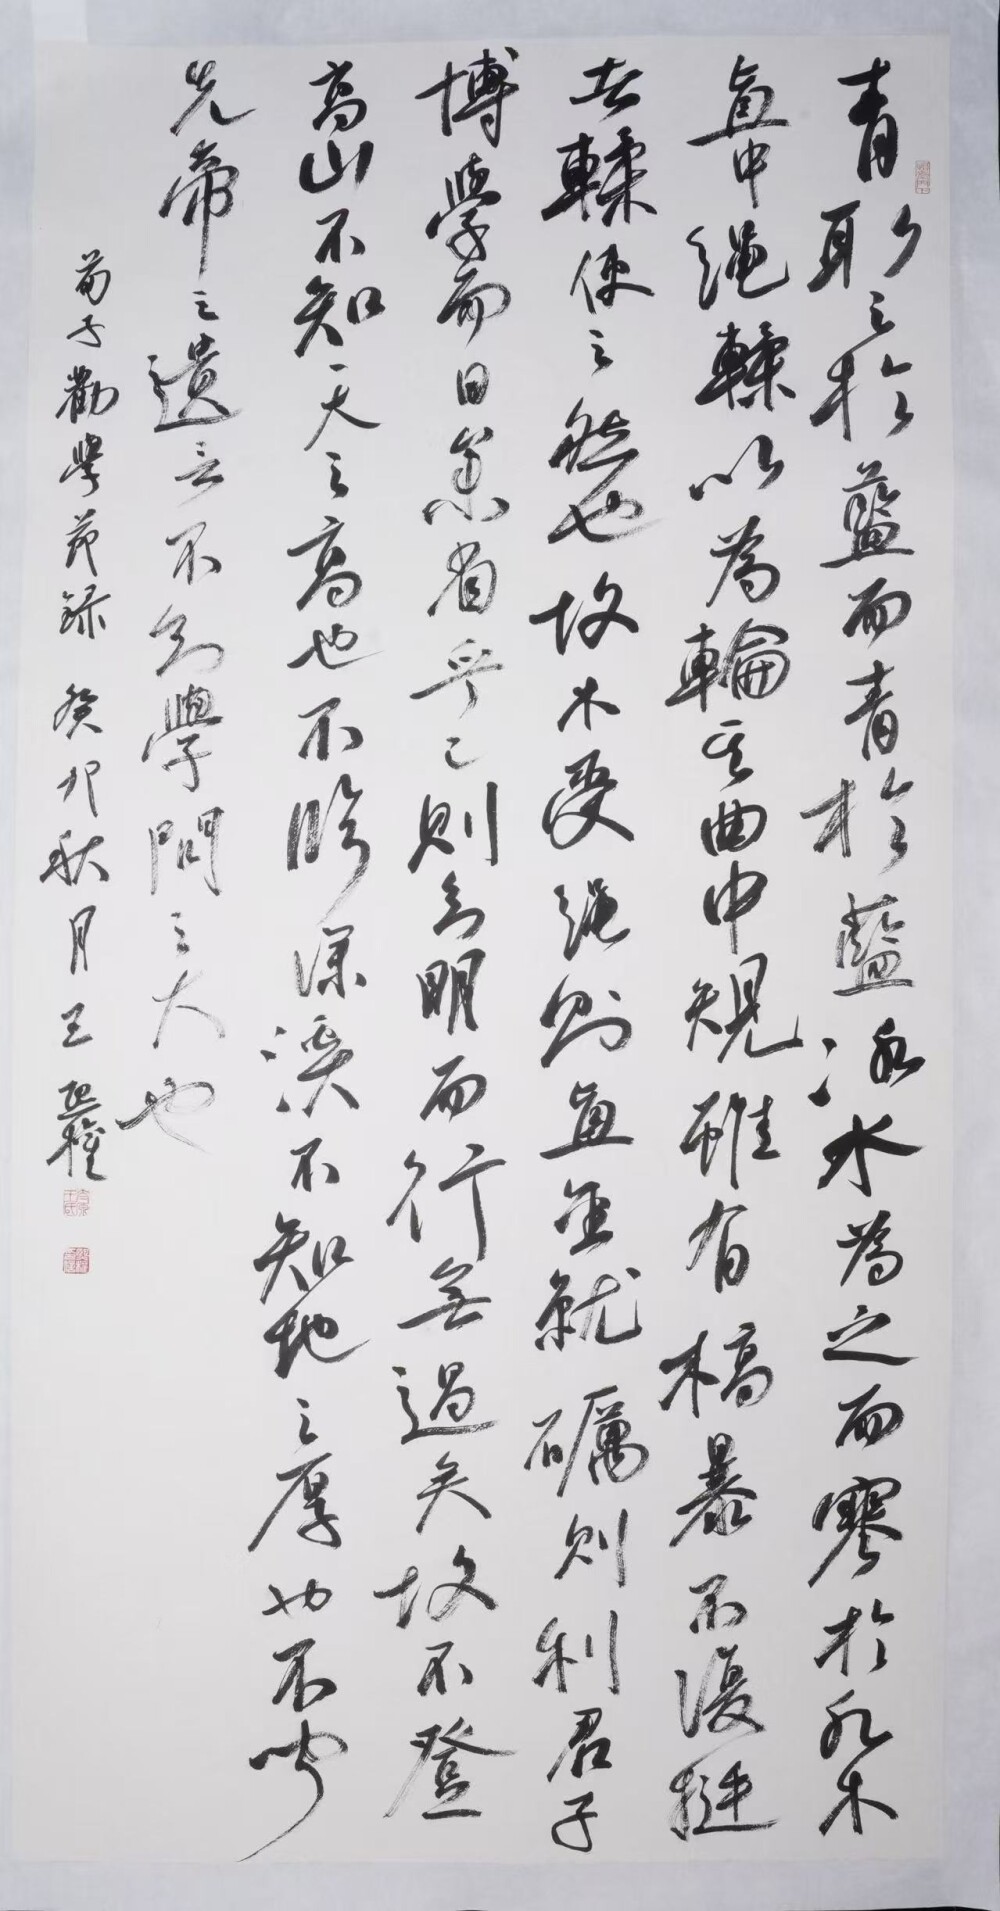 青取之於藍而青於藍冰水為之而寒於水木
直中繩輮以為輪其曲中規雖有槁暴不復挺
者輮使之然也故木受繩則直金就礪則利君子
博學而日參省乎己則知明而行無過矣故不登
高山不知天之高也不臨深溪不知地之厚也不聞
先帝之遺言不知學問之大也
荀子勸學節錄 癸卯秋月王